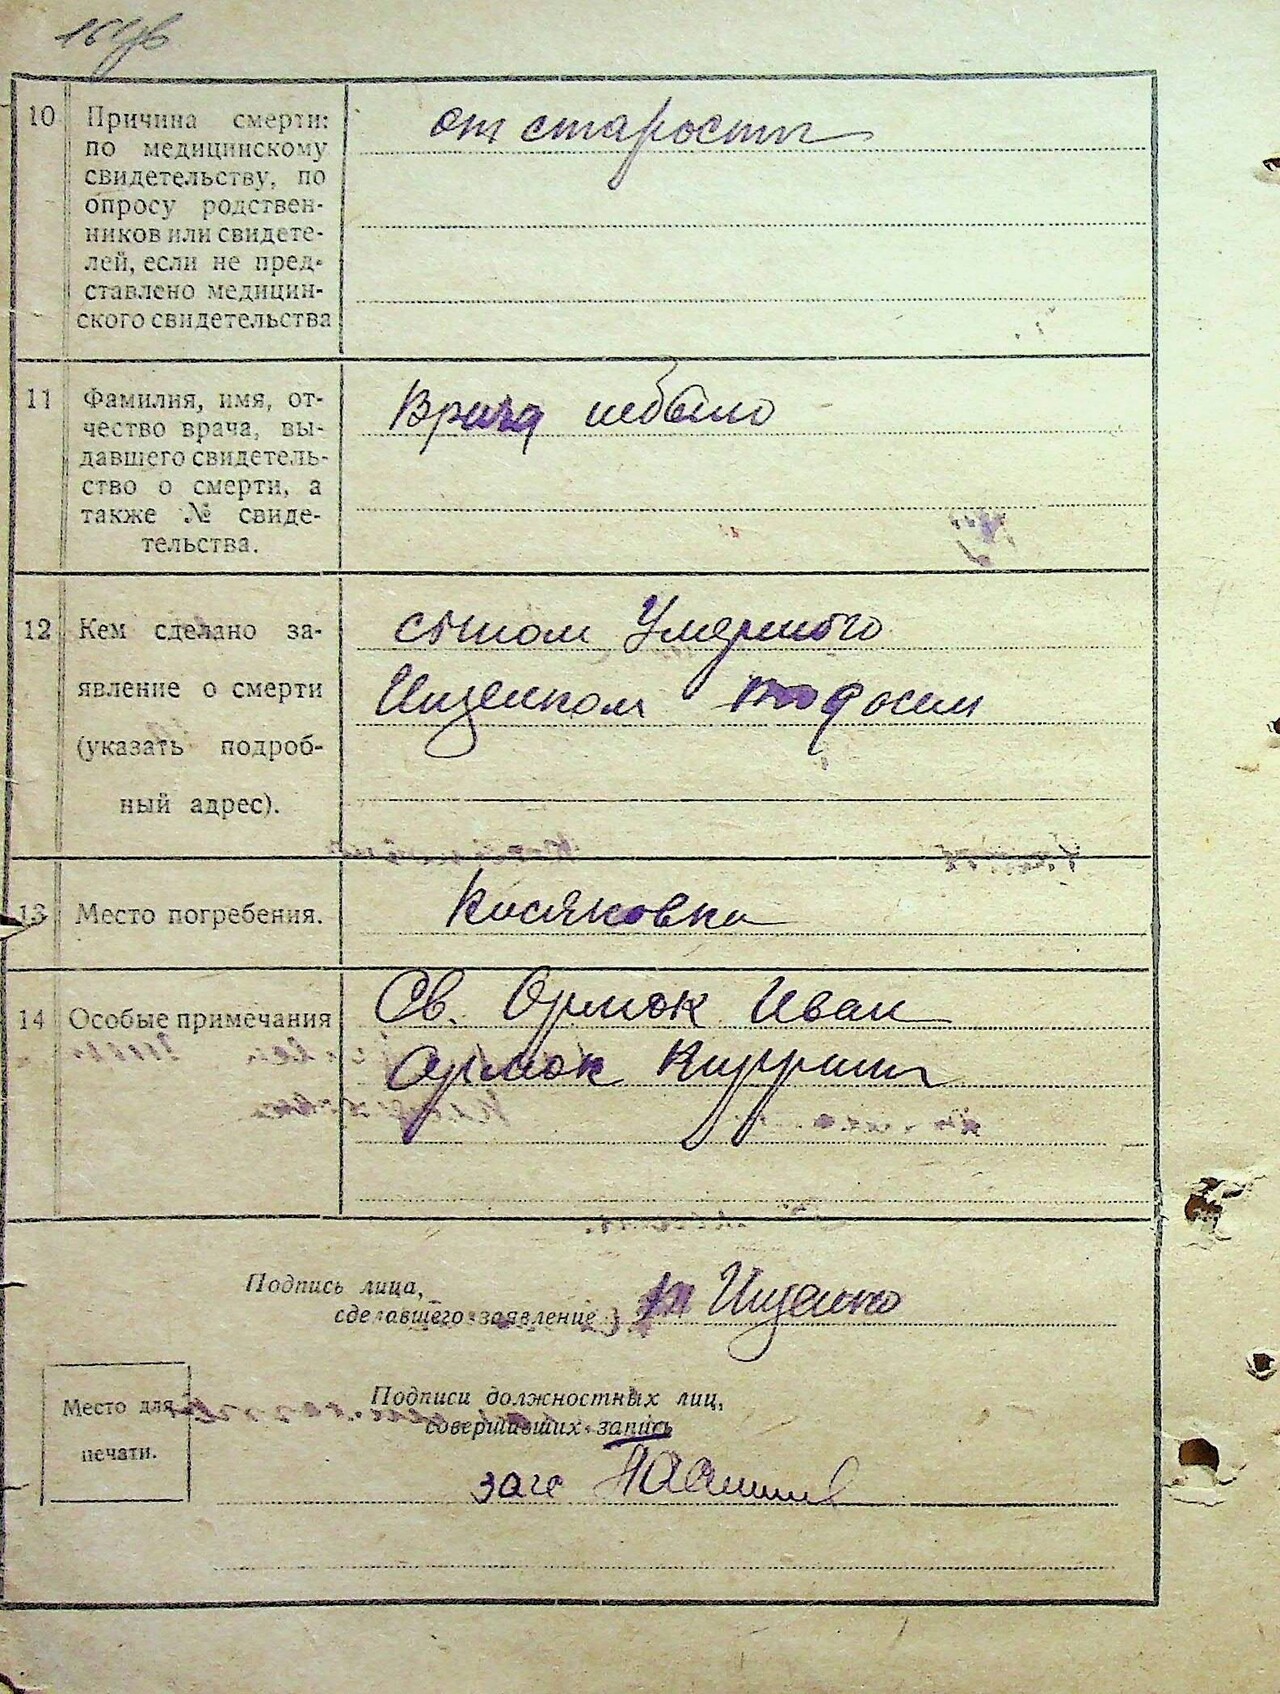 10 Причина смерти:
по медицинскому
свидетельству, по
опросу родствен-
ников или свидете-
лей, если не пред-
ставлено медицин-
ского свидетельства
от старости
11 Фамилия, имя, от-
чество врача, вы-
давшего свидетель-
ство о смерти, а
также № свиде-
тельства.
Врача небыло
12 Кем сделано за-
явление о смерти
(указать подроб-
ный адрес).
сыном Умершого
Ищенком
13 Место погребения.
Косяковка
14 Особые примечания
Св. Ярмок Иван
Ярмок
Подпись лица,
сделавшего заявление
Ищенко
Место для
печати.
Подписи должностных лиц,
совершивших запись
загс